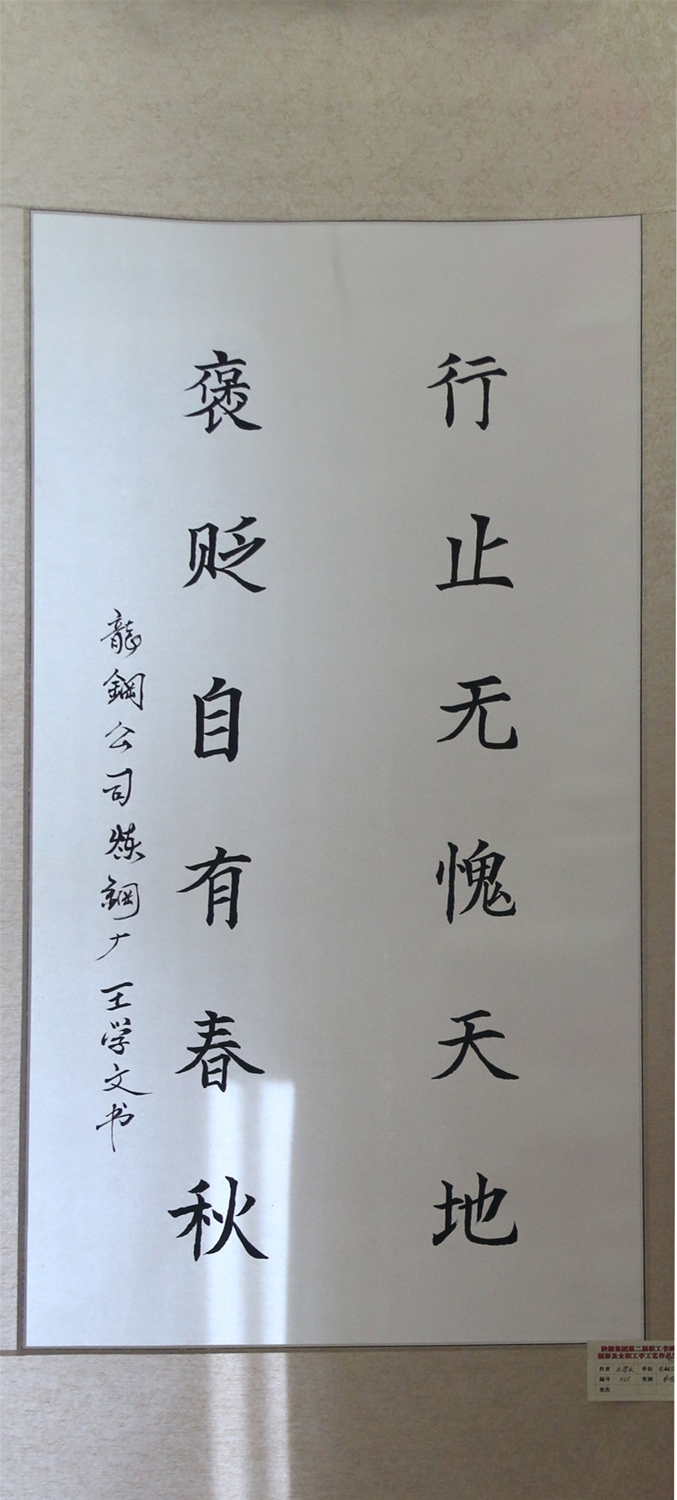 行止无愧天地
褒贬自有春秋
龍鋼公司炼鋼厂王学文书
作者 王学文 单位
编号 125 类别